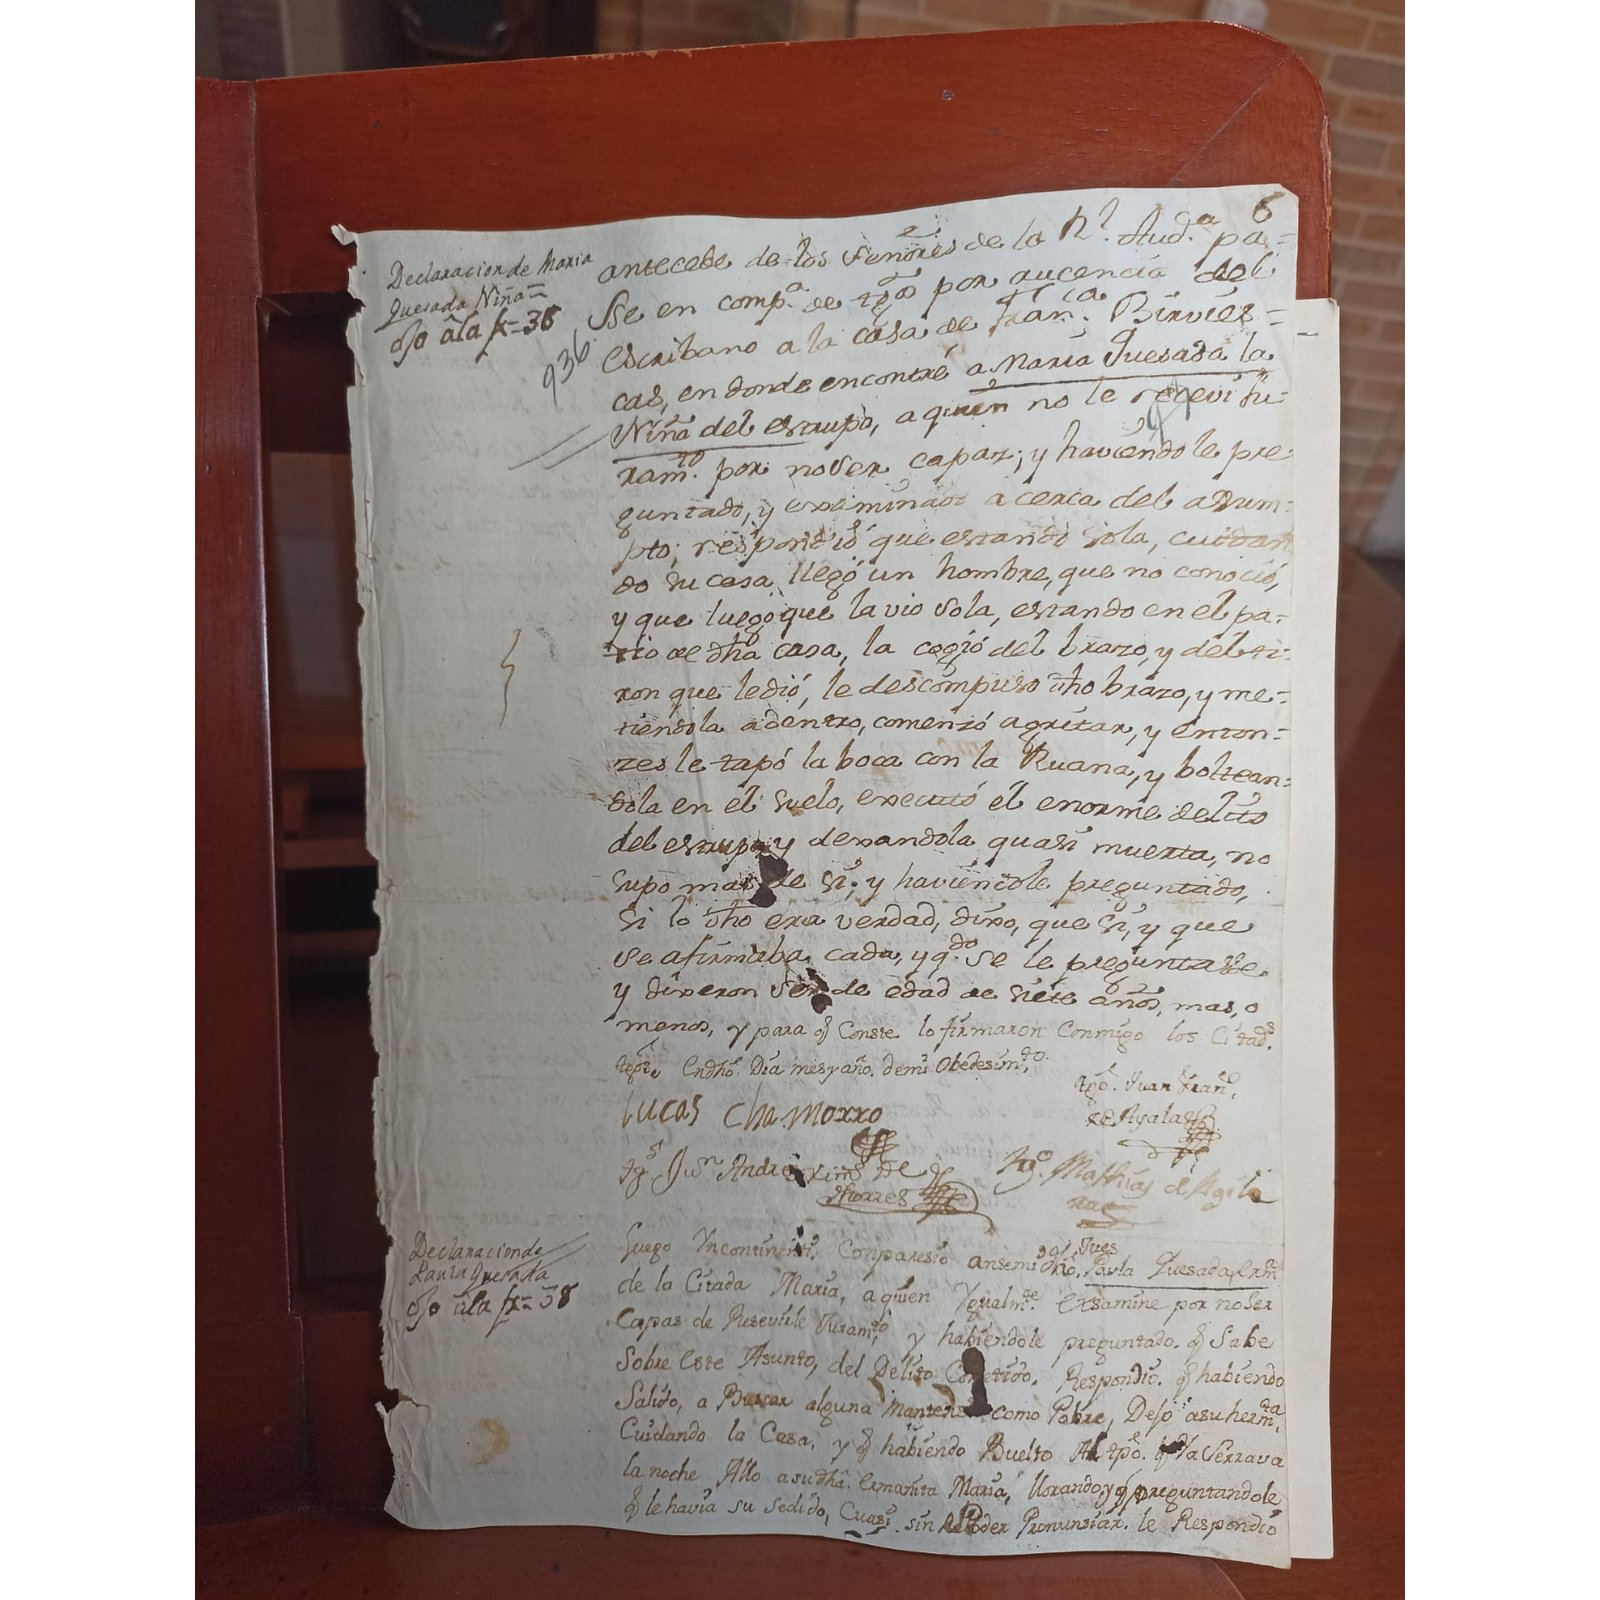 6
Declaracion de Maria
Quesada Niña=
ojo â la fx=38
936
antecede de los señores de la Rl. Aud.a pa=
sse en comp.a de tgos por aucencia del
escribano a la casa de Fran.ca Birvies=
cas, en donde encontré a Maria Quesada la
Niña del estrupo, a quien no le recevi ju=
ram.to por no ser capaz; y haviendole pre=
guntado, y examinado a cerca del asum=
pto, respondió, que estando sola, cuidan
do su casa, llegó un hombre, que no conoció,
y que luego que la vio sola, estando en el pa=
tio de dha casa, la cogió del brazo, y del ti=
ron que le dió, le descompuso dho brazo, y me=
tiendola adentro, comenzó a gritar, y enton=
zes le tapó la boca con la Ruana, y boltean=
dola en el suelo, executó el enorme delito
del estrupo y dexandola quasi muerta, no
supo mas de si; y haviendole preguntado,
si lo dho era verdad, dixo, que si, y que
se afirmaba cada, y q.do se le preguntasse.
y dixeron ser de edad de siete años, mas, o
menos, y para q Conste lo firmaron Conmigo los Citad.s
tgos. En dho. Dia mes y año. de mi Obedesim.to
Lucas Chamorro
tgo. Juan Fran.co
de Ayala
tg.s Ju.n Andres Xim.s de
tgo. Mathias de Agila
Declaracion de
Paula Quesada
ojo â la fx=38
Luego Yncontinenti. Conparesio ante mi dho. Jues Paula Quesada Erm.a
de la Citada Maria, a quien Ygualm.te Exsamine por no ser
Capas de Resevirle Juram.to, y habiendole preguntado. q Sabe
Sobre Este Asunto, del Delito Cometido. Respondio. q habiendo
Salido, a Buscar alguna Mantensn como Pobre, Dejo a su herm.ta
Cuidando la Casa, y q habiendo Buelto Al tpo. q Ya Serrava
la noche Allo a su dha. Ermanita Maria, llorando, y q preguntandole
q le havia su sedido, Cuasi sin Poder Pronunsiar. le Respondio